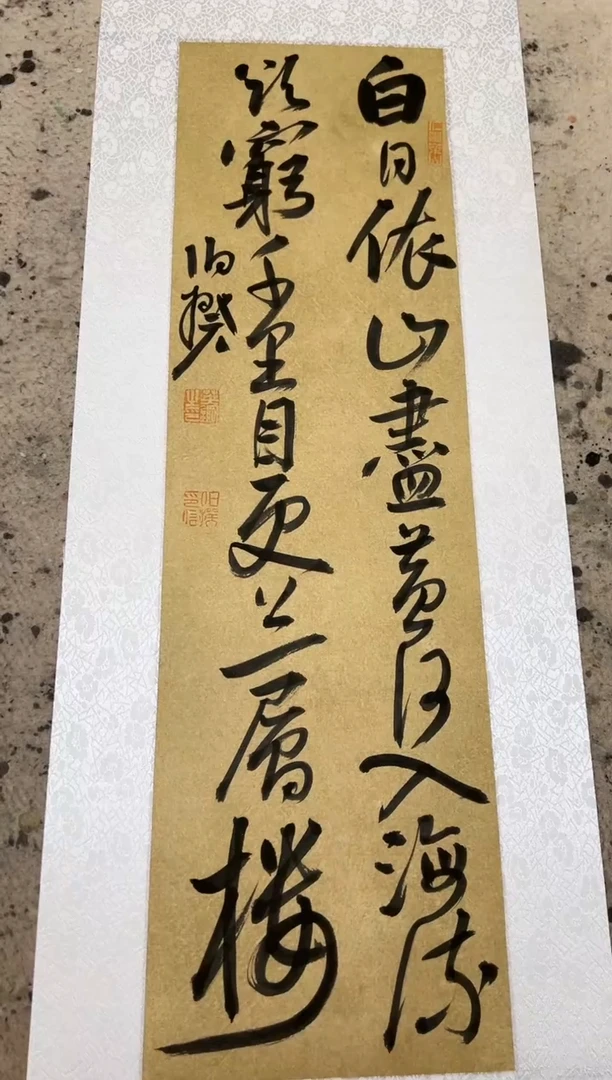 白日依山盡黃河入海流
欲窮千里目更上一層樓
伯揆